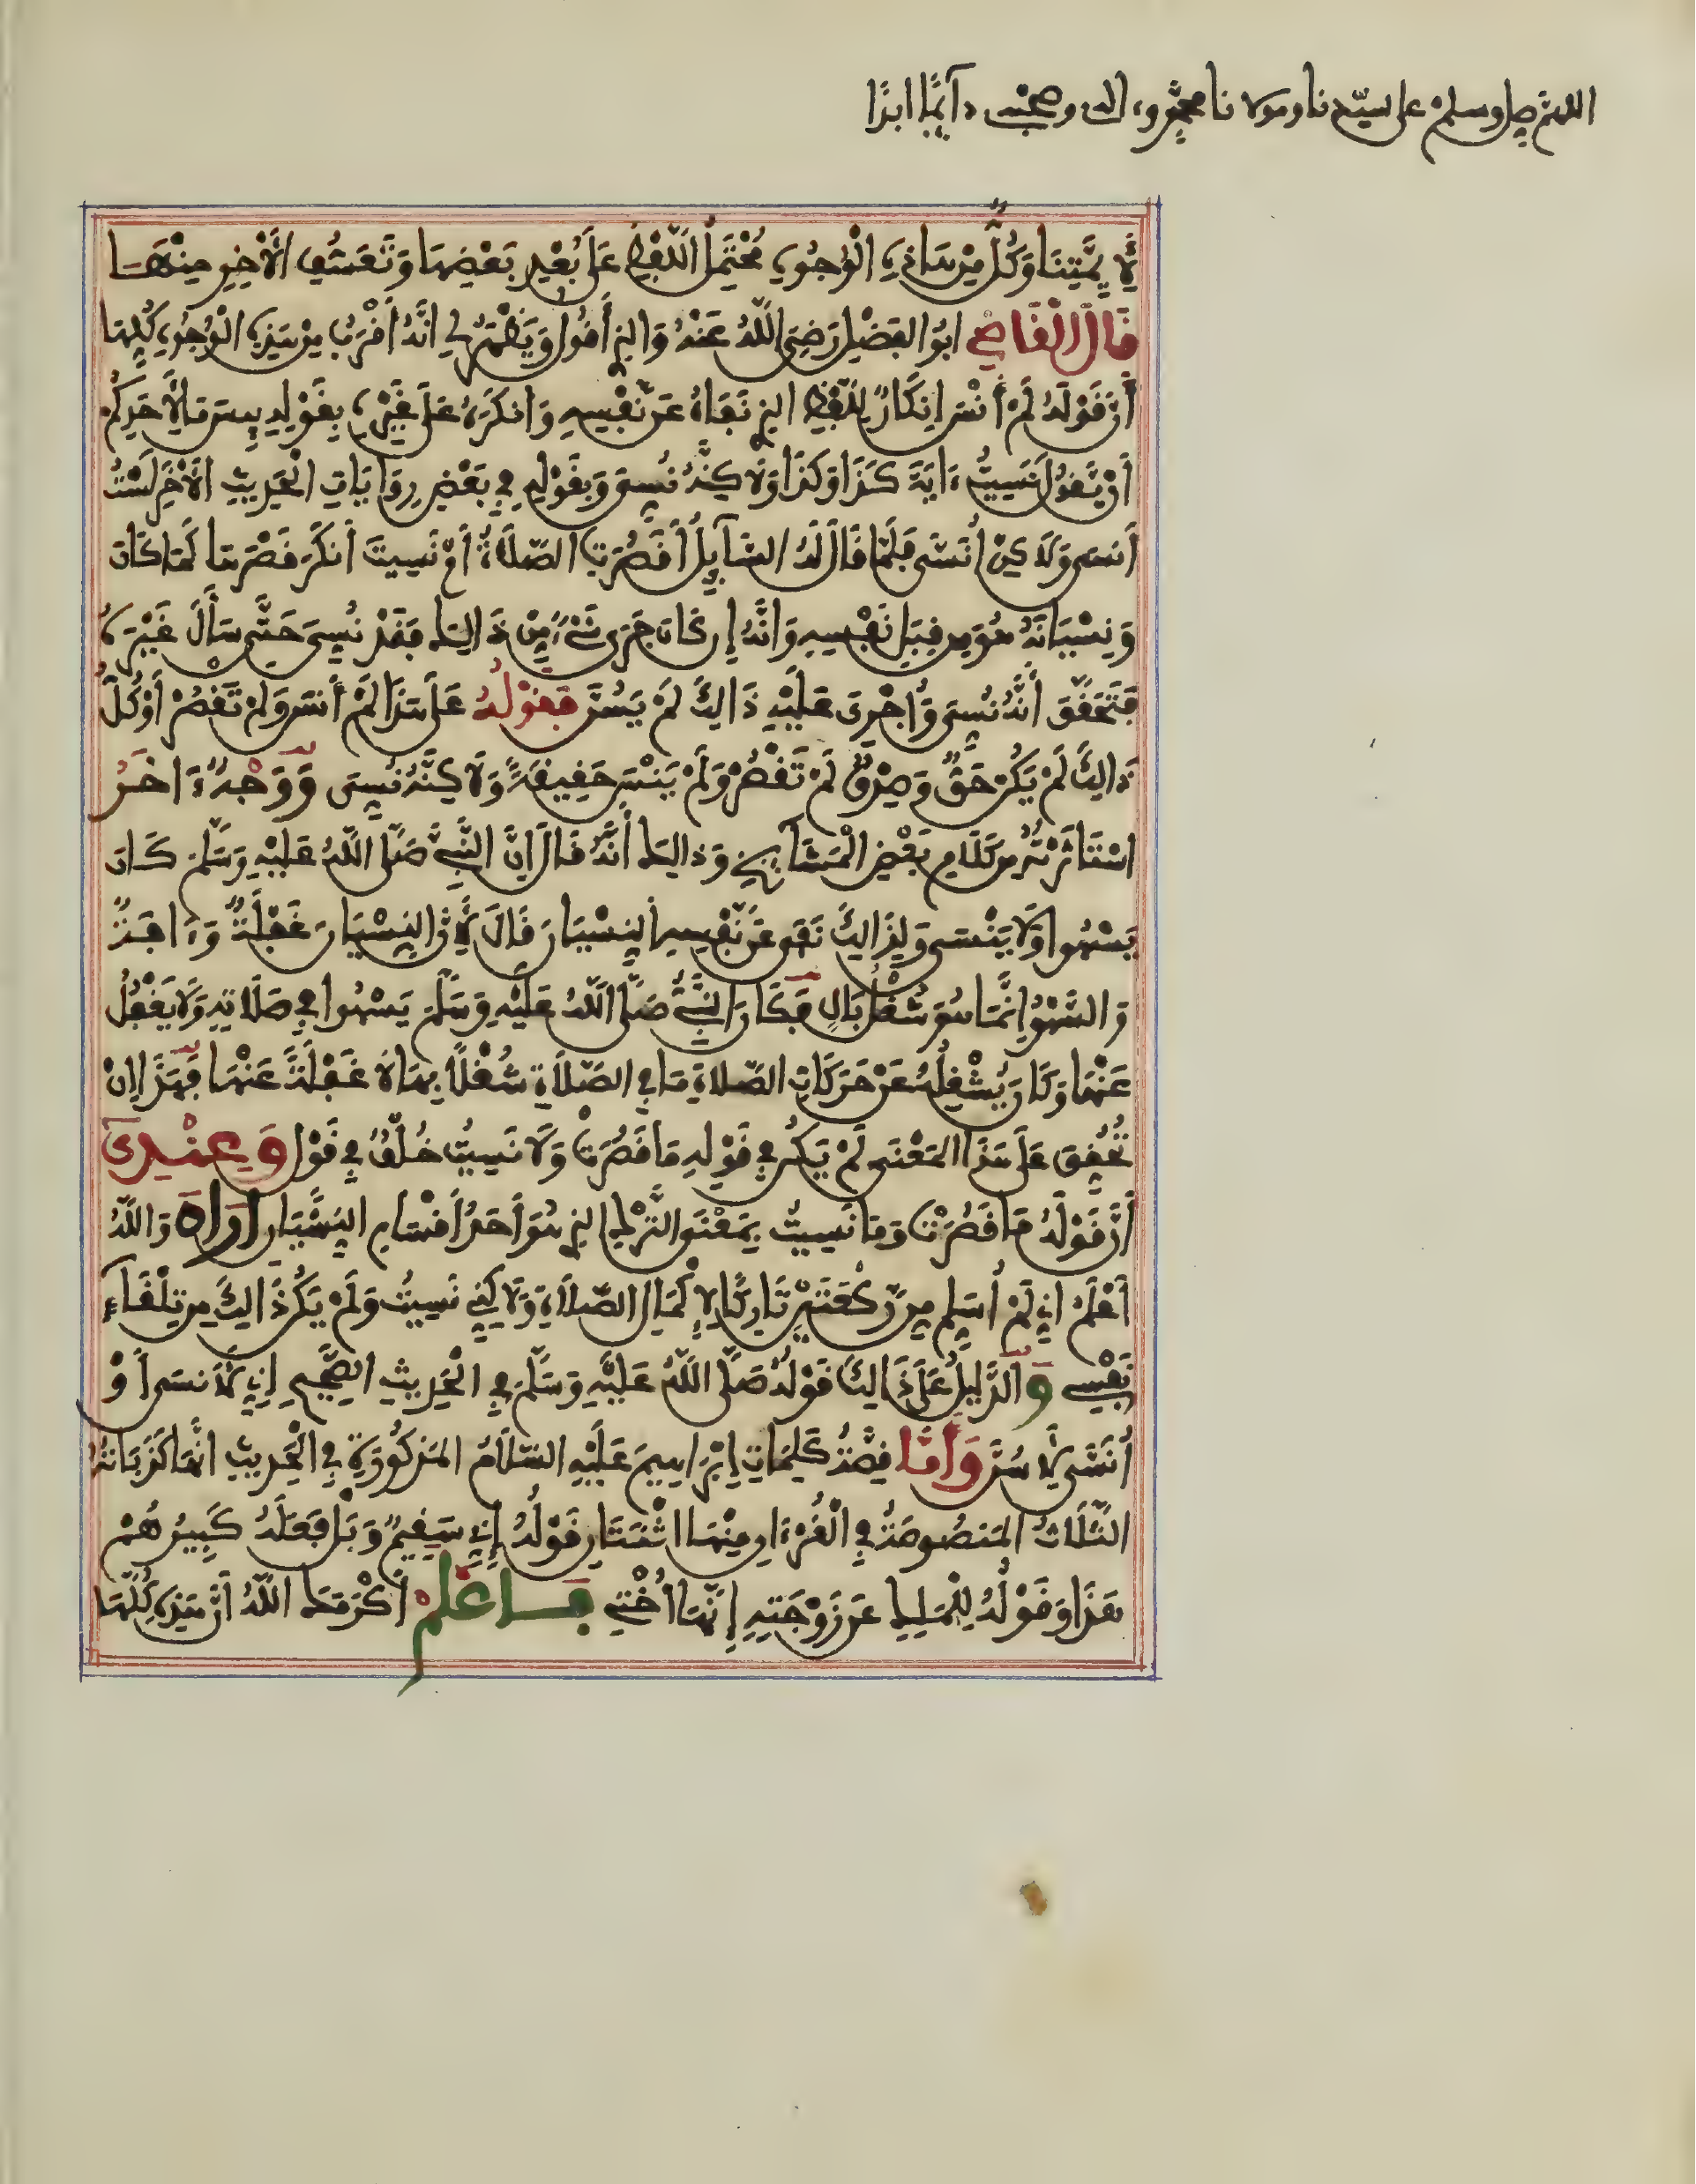 اللهم صل وسلم على سيدنا ومولانا محمد وءاله وصحبه دآئما ابدا
لأيمتنا وكل من هاذه الوجوه محتمل اللفظ على بعد بعضها وتعسف الأخر منها
قال القاضي ابوا الفضل رضي الله عنه والذي أقول ويظهر لي انه أقرب من هذه الوجوه كلها
أن قوله لم أنس إنكار للفظ الذي نفاه عن نفسه وانكره على غيره بقوله بيس ما لأحدكم
أن يقول نسيت ءاية كذا وكذا ولاكنه نسي وبقوله في بعض روايات الحديث الأخر لست
أنسى ولاكن أنسى فلما قال له السآيل أقصرت الصلاة أم نسيت أنكر قصرها كما كان
ونسيانه هو من قبل نفسه وانه إن كان جرى شيء من ذالك فقد نسي حتى سأل غيره
فتحقق أنه نسي وأجري عليه ذالك لم يسن فقوله على هذا لم أنس ولم تقصر أو كل
ذالك لم يكن حق وصدق لم تقصر ولم ينس حقيقة ولاكنه نسي ووجه ءاخر
استثرته من كلام بعض المشآيخ وذالك أنه قال إن النبي صلى الله عليه وسلم كان
يسهوا ولا ينسى ولذالك نفى عن نفسه النسيان قال لأن النسيان غفلة وءافة
والسهو إنما هو شغل بال فكان النبي صلى الله عليه وسلم يسهوا في صلاته ولا يغفل
عنها وكان يشغله عن حركات الصلاة ما في الصلاة شغلا بها لا غفلة عنها فهذا إن
تحقق على هذا المعنى لم يكن في قوله ما قصرت ولا نسيت خلف في قول وعندي
أن قوله ما قصرت وما نسيت بمعنى الترك الذي هو أحد أقسام النسيان اراه والله
أعلم اني لم أسلم من ركعتين تاركا لإكمال الصلاة ولاكني نسيت ولم يكن ذالك من تلقاء
نفسي والدليل على ذالك قوله صلى الله عليه وسلم في الحديث الصحيح إني لأنسى أو
أنسى لأسن وأما قصة كلمات إبراهيم عليه السلام المذكورة في الحديث انها كذباته
الثلاث المنصوصة في القرءان منها اثنتان قوله إني سقيم وبل فعله كبيرهم
هذا وقوله للملك عن زوجته إنها أختي فاعلم أكرمك الله أن هذه كلها